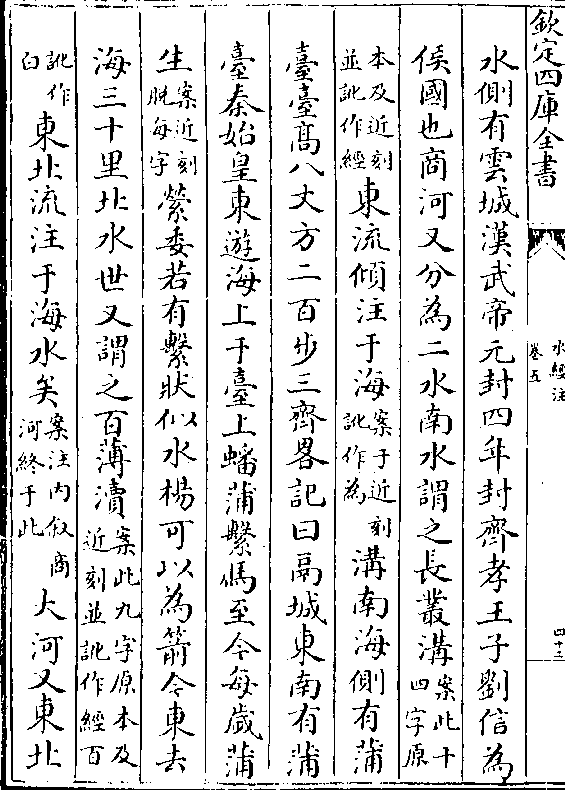 欽定四庫全書
水經注
卷五
四十三
水側有雲城漢武帝元封四年封齊孝王子劉信為
侯國也商河又分為二水南水謂之長叢溝案此十四字原
本及近刻並訛作經東流傾注于海案于近刻訛作為溝南海側有蒲
臺臺髙八丈方二百步三齊畧記曰鬲城東南有蒲
臺秦始皇東遊海上于臺上蟠蒲繫馬至今每歲蒲
生案近刻脱每字縈委若有繫狀似水楊可以為箭今東去
海三十里北水世又謂之百薄瀆案此九字原本及近刻並訛作經百
訛作白東北流注于海水矣案注内叙商河終于此大河又東北